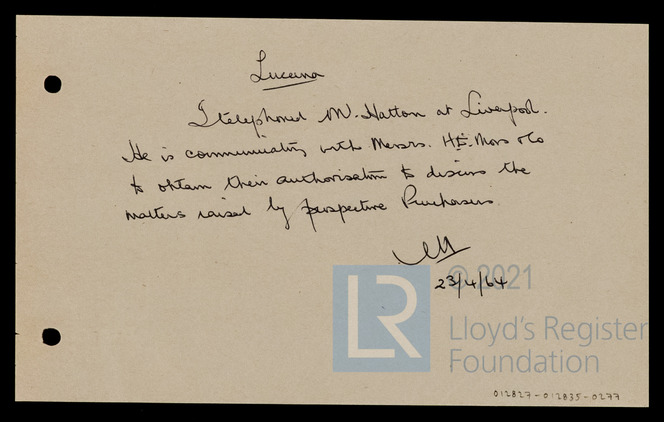 Lucerna
I telephoned Mr. Hatton at Liverpool.
He is communicating with Messrs. H.E. Moss & Co
to obtain their authorisation to discuss the
matters raised by prospective Purchasers
23/4/64
© 2021
LR
Lloyd's Register
Foundation
012827-012835-0277